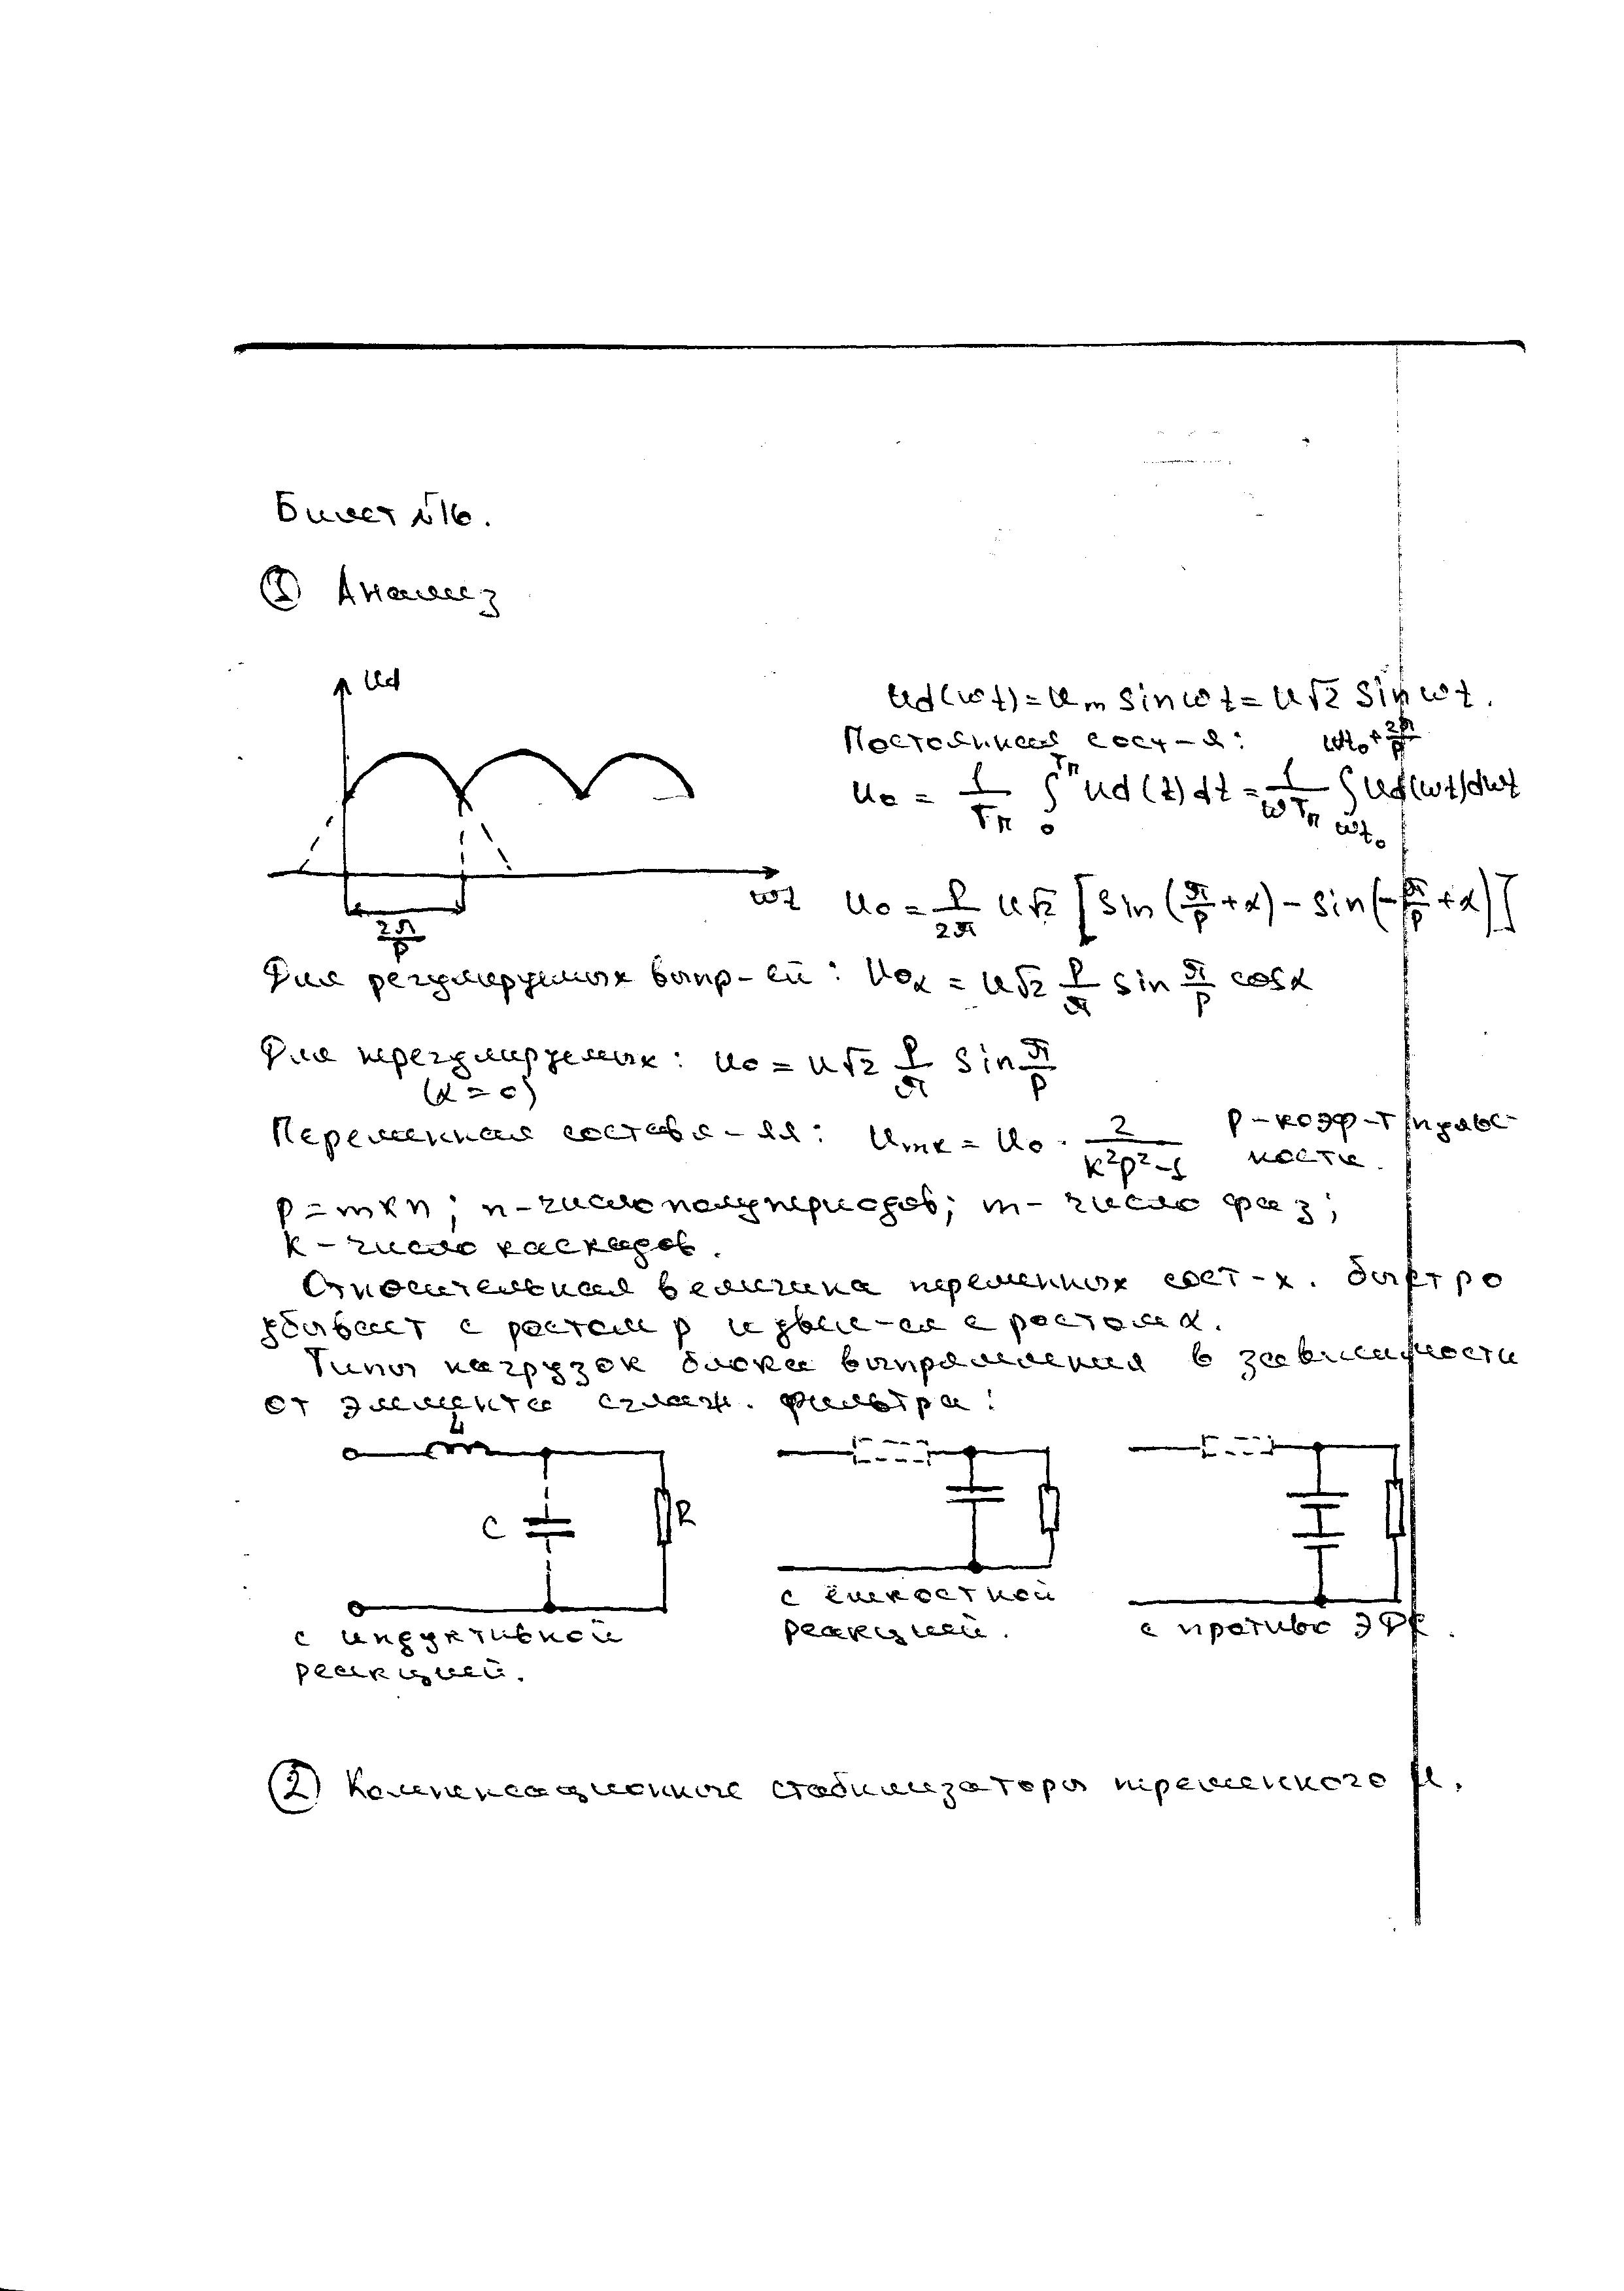 Билет №16.
① Анализ
Ud
ud(ωt) = um sin ωt = u√2 sin ωt.
Постоянная сост-я:
u0 = 1/Tп ∫₀^Tп ud(t)dt = 1/ωTп ∫_ωt₀^(ωt₀+2π/p) ud(ωt)dωt
ωt
2π/p
u0 = p/2π u√2 [sin(π/p + α) - sin(-π/p + α)]
Для регулируемых выпр-ей: u0α = u√2 p/π sin π/p cosα
Для нрегулируемых: u0 = u√2 p/π sin π/p
(α = 0)
Переменная составл-яя: umк = u0 · 2/(к²p²-1) p-коэф-т пульс-
ности.
p = m×n; n-число полупериодов; m- число фаз;
к - число каскадов.
Относительная величина переменных сост-х. быстро
убывает с ростом p и увел-ся с ростом α.
Типы нагрузок блока выпрямления в зависимости
от элемента сглаж. фильтра:
L
C
R
с индуктивной
реакцией.
с ёмкостной
реакцией.
с противо ЭДС.
② Компенсационные стабилизаторы переменного u.